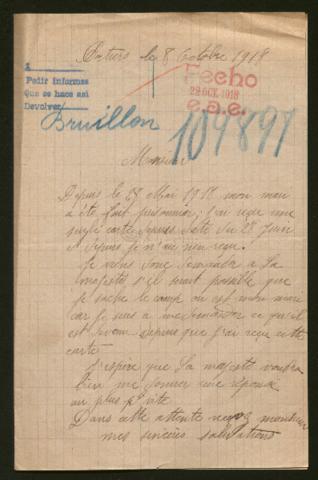 Poitiers le 8 Octobre 1918
1
Pedir informes
Que se hace asi
Devolver
Fecho
22 OCT. 1918
e.a.e.
Bruillon
109897
Monsieur
Depuis le 27 Mai 1918 mon mari
a été fait prisonnier, j'ai reçu une
seule carte depuis daté du 28 Juin
et depuis je n'ai rien reçu.
Je viens donc demander a Sa
majesté s'il serait possible que
je sache le camp ou est mon mari
car je suis a me demander ce qu'il
est devenu depuis que j'ai reçu cette
carte
J'espère que Sa majesté voudra
bien me donner une réponse
au plus vite
Dans cette attente recevez monsieur
mes sincères salutations